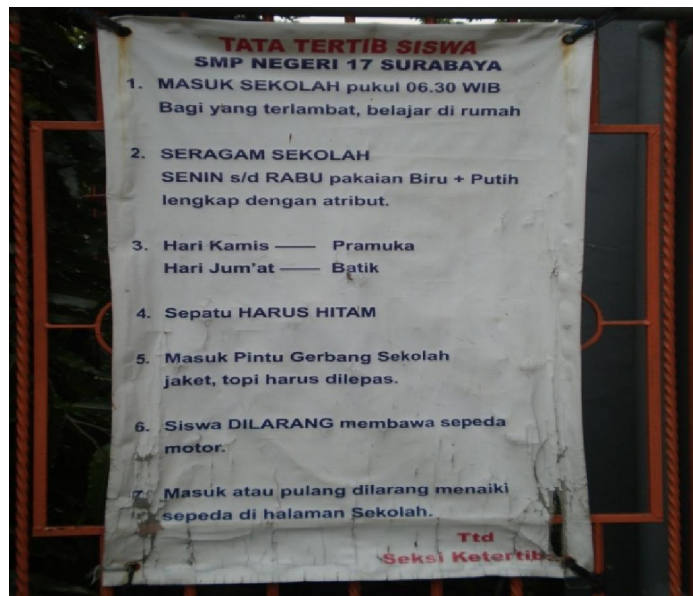 TATA TERTIB SISWA
SMP NEGERI 17 SURABAYA
1. MASUK SEKOLAH pukul 06.30 WIB
Bagi yang terlambat, belajar di rumah
2. SERAGAM SEKOLAH
SENIN s/d RABU pakaian Biru + Putih
lengkap dengan atribut.
3. Hari Kamis —— Pramuka
Hari Jum'at —— Batik
4. Sepatu HARUS HITAM
5. Masuk Pintu Gerbang Sekolah
jaket, topi harus dilepas.
6. Siswa DILARANG membawa sepeda
motor.
7. Masuk atau pulang dilarang menaiki
sepeda di halaman Sekolah.
Ttd
Seksi Ketertib